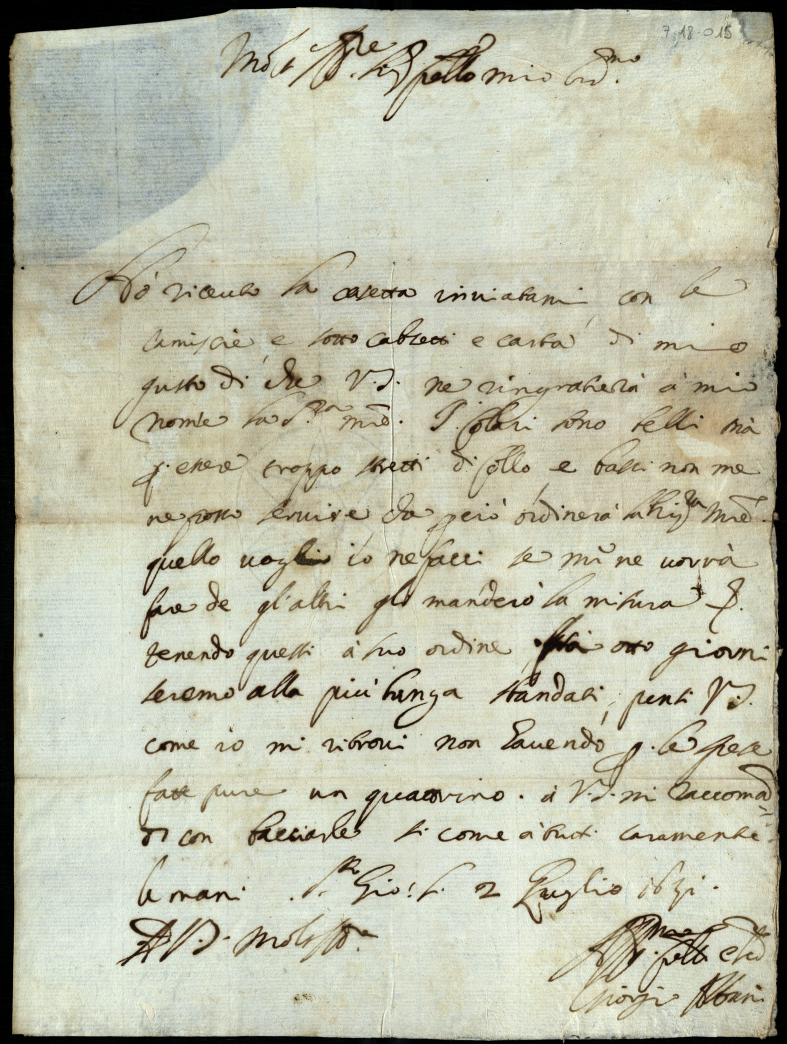 7-18-015
Molt Ill.re Sig.r fratello mio
Hò riceuto la casetta inviatami, con le
Camiscie e sotto calzetti e carta, di mio
gusto di che V.S. ne ringratierà à mio
nome la S.ra M.e. I Colari sono belli mà
p. essere troppo stretti di collo e bassi non me
ne posso servire da però ordinerà la Sig.ra M.e
quello voglio io ne facci se mi ne vorrà
fare de gl'altri gli manderò la misura
tenendo questi à suo ordine otto giorni
seremo alla più lunga sbandati, pensi V.S.
come io mi ritrovi non havendo p. le spese
fatte pure un quatrino. à V.S. mi raccoma
do con bacciarle si come à tutti caramente
le mani. Gio: li 2 Luglio 1631.
D V.S. molt Ill.re
Aff.mo fratello
Giorgio